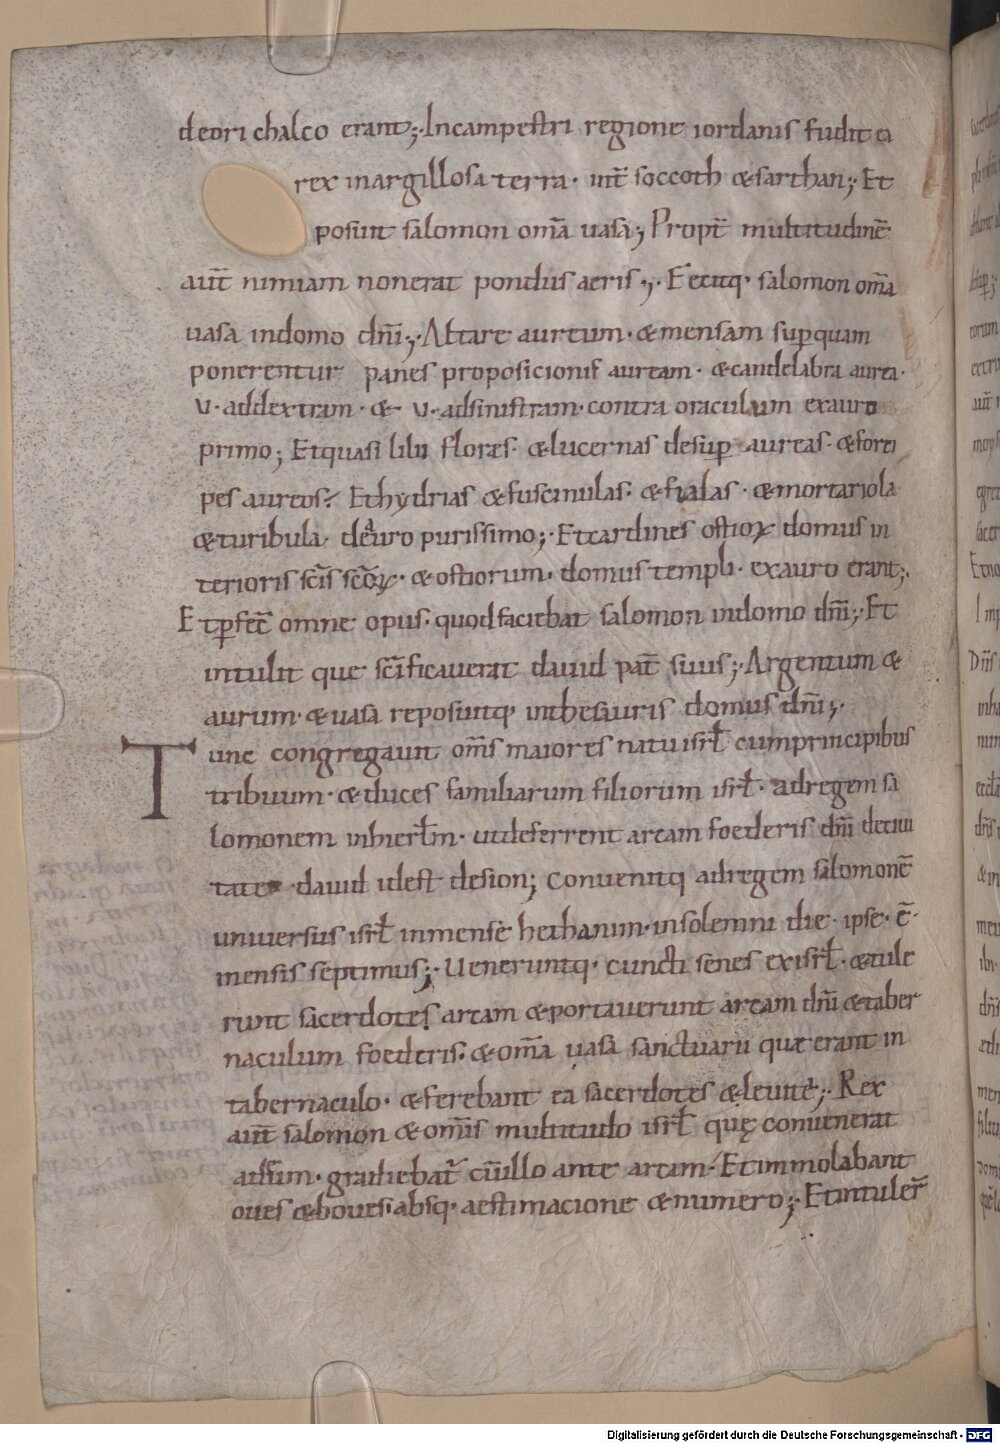 deori chalco erant;· Incampestri regione iordanis fudit ea
rex inargillosa terra· int̄ soccoth & sarthan;· Et
posuit salomon om̄a uasa; Propt̄ multitudinē
aut̄ nimiam nonerat pondus aeris·;· Fecitq· salomon om̄a
uasa indomo dn̄i;· Altare aureum· & mensam sup̱quam
ponerentur panes proposicionis auream· & candelabra aurea·
v· addextram· & v· adsinistram· contra oraculum exauro
primo; Etquasi lilii flores· & lucernas desup̱ aureas· & forci
pes aureos· Ethydrias & fuscinulas· & fialas· & mortariola
& turibula deauro purissimo;· Etcardines ostioꝝ domus in
terioris sc̄is sc̄oꝝ· & ostiorum· domus templi· exauro erant;·
Etp̱fec̄ omne opus· quodfaciebat salomon indomo dn̄i;· Et
intulit que sc̄ificauerat dauid pat̄ suus;· Argentum &
aurum· & uasa reposuitq· inthesauris domus dn̄i;·
Tunc congregauit om̄s maiores natu isrł cumprincipibus
tribuum· & duces familiarum filiorum isrł· adregem sa
lomonem inhierłm· utdeferrent arcam foederis dn̄i deciui
tate dauid idest desion; Conuenitq adregem salomonē
uniuersus isrł inmense hethanim· insolemni die· ipse· ē·
mensis septimus;· Ueneruntq· cuncti senes exisrł· & tule
runt sacerdotes arcam & portauerunt arcam dn̄i & taber
naculum foederis· & om̄a uasa sanctuarii quae erant in
tabernaculo· & ferebant ea sacerdotes & leuitę;· Rex
aut̄ salomon & om̄is multitudo isrł quę conuenerat
adsum· gradiebat̄ cūillo ante arcam· Etimmolabant
oues & boues· absq· aestimacione & numero;· Etintuler̄
Digitalisierung gefördert durch die Deutsche Forschungsgemeinschaft - DFG